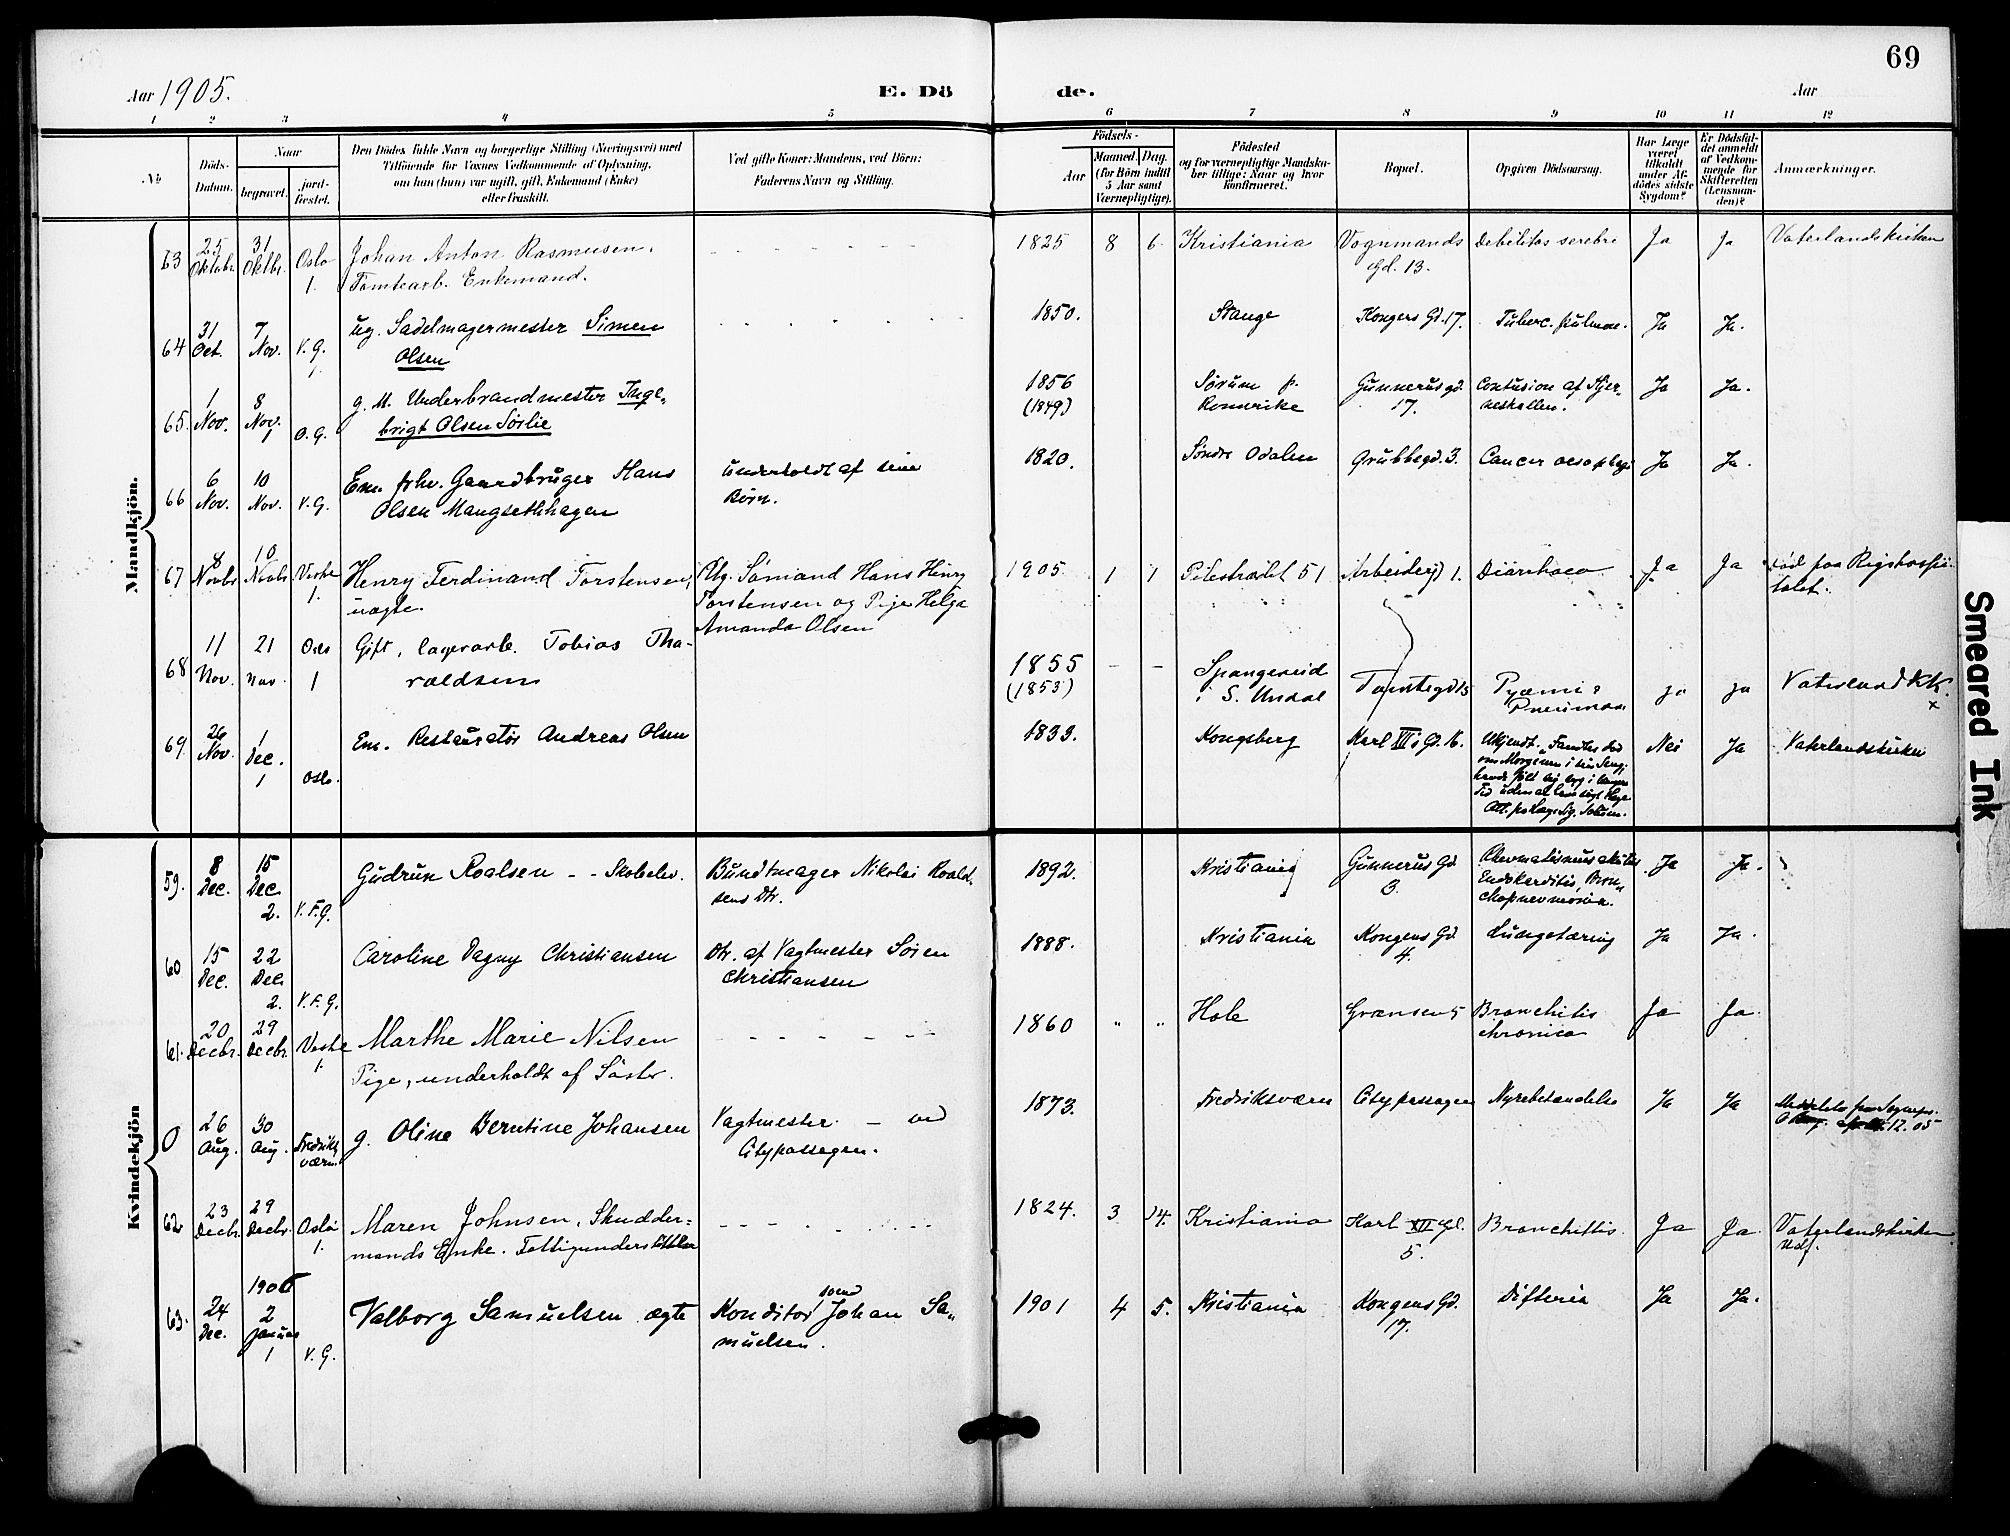 69
Aar 1905.
E. Dö
de.
Aar
1 2 3 4 5 6 7 8 9 10 11 12
No
Döds-
Datum.
Naar
begravet.
jord-
fæstet.
Den Dödes fulde Navn og borgerlige Stilling (Næringsvei) med
Tilföiende for Voxnes Vedkommende af Oplysning,
om han (hun) var ugift, gift, Enkemand (Enke)
eller fraskilt.
Ved gifte Koner: Mandens, ved Börn:
Faderens Navn og Stilling.
Födsels-
Aar
Maaned. Dag.
(for Börn indtil
5 Aar samt
Værnepligtige).
Födested
og for værnepligtige Mandska-
ber tillige: Naar og hvor
konfirmeret.
Bopæl.
Opgiven Dödsaarsag.
Har Læge
været
tilkaldt
under Af-
dödes sidste
Sygdom?
Er Dödsfal-
det anmeldt
af Vedkom-
mende for
Skifteretten
(Lensman-
den)?
Anmærkninger.
Mandkjön.
63 25 Oktobr. 31 Oktbr. Oslo 1.
Johan Anton Rasmusen.
Tomtearb. Enkemand.
1825 8 6 Kristiania
Vognmands
Gd. 13.
Debilitas
Ja Ja Vaterlandskirken
64 31 Oct. 7 Nov. V. G.
ug. Sadelmagermester Simen
Olsen
1850. Stange Kongens Gd. 17. Tuberc. pulmon. Ja Ja.
65. 1 Nov. 8 Nov. 1 O. G.
g. M. Underbrandmester Inge-
brigt Olsen Sørlie
1856
(1849)
Sørum p.
Romerike
Gunnerusgd.
17.
Contusion af Hjer-
neskallen.
Ja Ja.
66 6 Nov. 10 Nov. V. G.
Em. fhv. Gaardbruger Hans
Olsen Mangsethhagen
underholdt af sine
Børn.
1820. Søndre Odalen Grubbegd. 3. Cancer oesophagi Ja Ja.
67 8 Novbr 10 Novbr Vestre 1.
Henry Ferdinand Torstensen,
uægte.
Ug. Sömand Hans Henry
Torstensen og Pige Helga
Amanda Olsen
1905 1 1 Pilestrædet 51 Arbeidergd 1. Diarrhoea Ja Ja
død paa Rigshospi-
talet.
68 11 Nov. 21 Nov. Oslo 1
Gift, lagerarb. Tobias Tha-
raldsen
1855
(1853)
- -
Spangereid
i S. Undal
Tomtegd 15
Pyæmi ?
Pneumon
ja ja Vaterland KK.
x
69. 26 Nov. 1 Dec. 1 Oslo.
Em. Restauratør Andreas Olsen
1833. Kongsberg Karl XII's Gd. 16.
Ukjendt. "Fandtes død
om Morgenen i sin Seng,
havde følt sig syg i længere
Tid uden at have søgt Læge
Nei Ja Vaterlandskirken
Kvindekjön
59. 8 Dec. 15 Dec. 2. V. F. G.
Gudrun Roalsen - - Skoleelev.
Bundtmager Nikolai Roald-
sens Dtr.
1892. Kristiania
Gunnerus Gd
3.
Rhevmatismus akutus
Endokarditis, Bron-
chopnevmonia.
Ja Ja.
60 15 Dec. 22 Dec. 2. V. F. G.
Caroline Dagny Christiansen
Dtr. af Vagtmester Søren
Christiansen
1888. Kristiania
Kongens Gd
4.
Lungetæring Ja Ja.
61. 20 Decbr. 29 Decbr. Vestre 1.
Marthe Marie Nilsen
Pige, underholdt af Söster.
1860 " " Hole Grænsen 5
Bronchitis
chronica
Ja Ja.
0 26 Aug. 30 Aug. Fredriks-
værn.
g. Oline Berntine Johansen
Vagtmester - ved
Citypassagen.
1873. Fredriksværn Citypassagen Nyrebetændelse Ja Ja
62 23 Decbr. 29 Decbr. Oslo 1.
Maren Johnsen, Skudder-
mands Enke. Fattigunderstöttelse
1824. 3 14. Kristiania
Karl XII Gd.
5.
Bronchittis. Ja Ja.
Vaterlandskirken
63. 24 Dec. 1906 2 Januar 1 V. G.
Valborg Samuelsen ægte
Konditorsvend Johan Sa-
muelsen.
1901 4 5. Kristiania
Kongens Gd.
17.
Difteria Ja Ja.
Smeared Ink